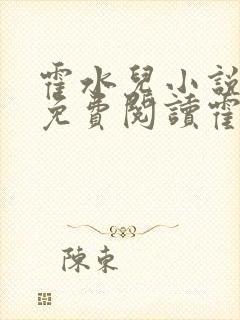 霍水兒小說
免費閱讀霍
陳東